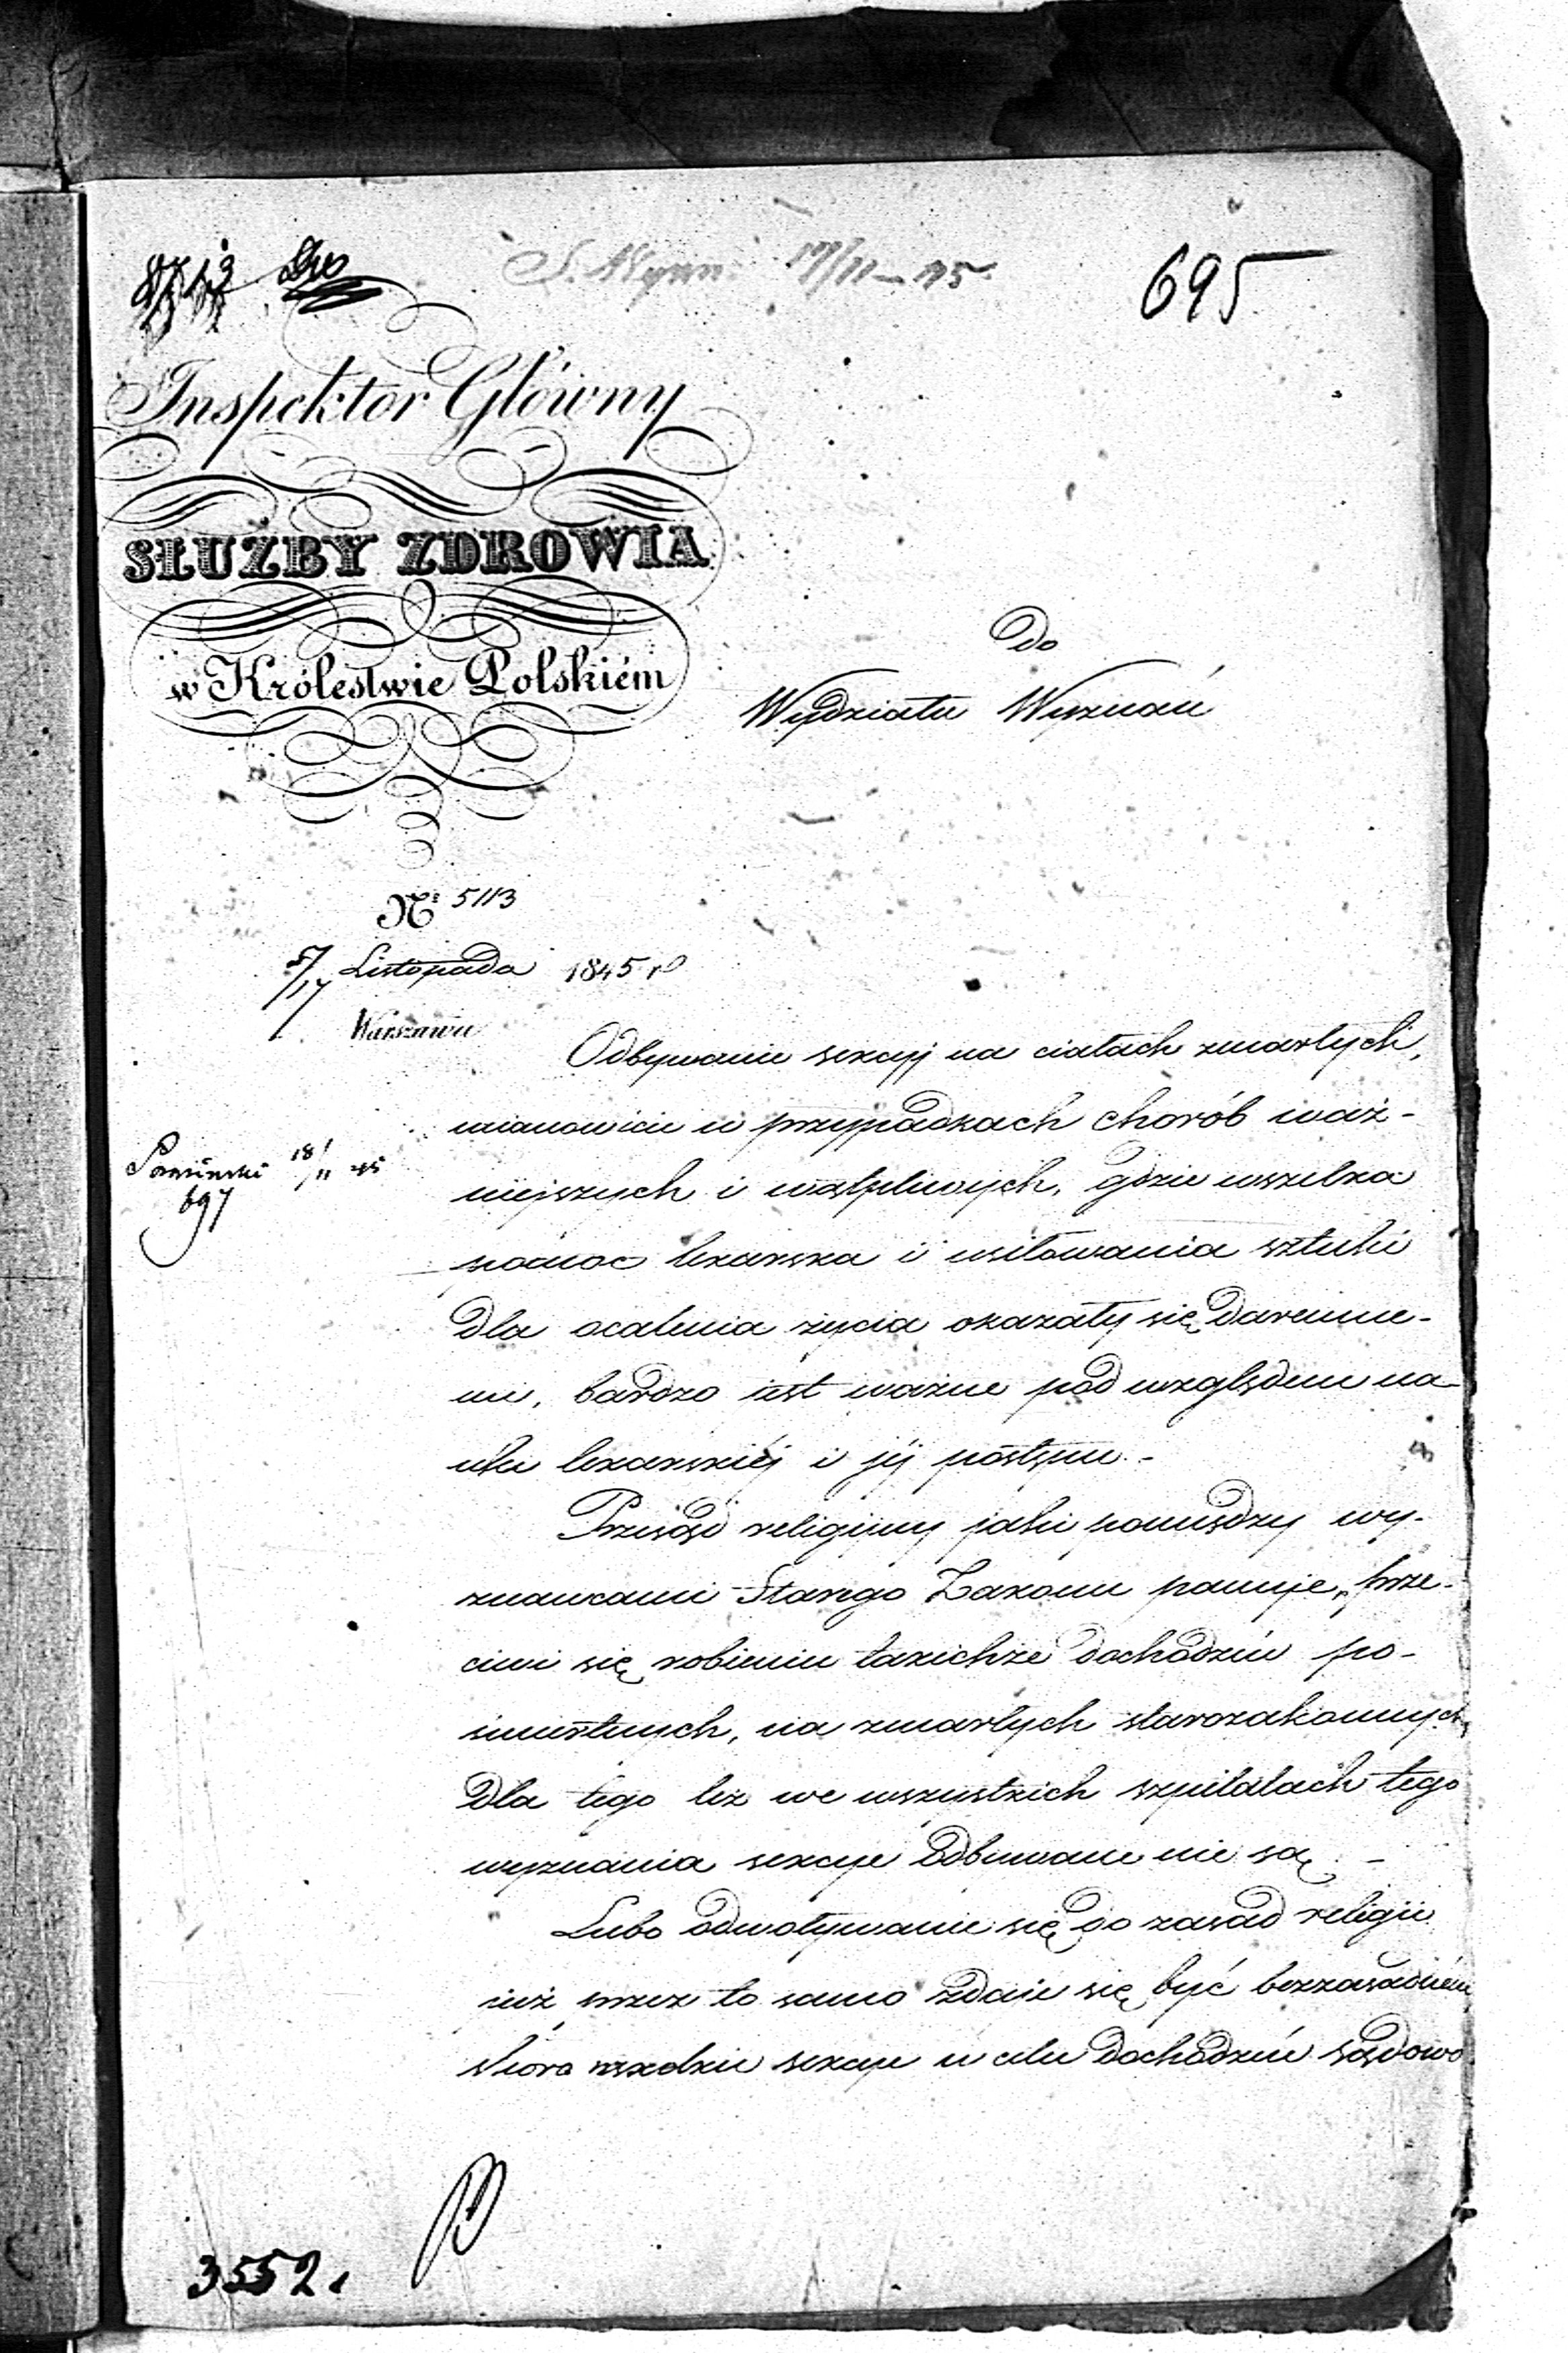 695
Inspektor Główny
SŁUŻBY ZDROWIA
w Królestwie Polskiém
Do
Wydziału Wyznań
Nº 5113
5/17 Listopada 1845 r
Warszawa
18/11 45
697
Odbywanie sekcyj na ciałach zmarłych,
mianowicie w przypadkach chorób waż-
niejszych i wątpliwych, gdzie wszelka
pomoc lekarska i usiłowania sztuki
dla ocalenia życia okazały się daremne-
mi, bardzo jest ważne pod względem na-
uki lekarskiéj i jéj postępu.-
Przesąd religijny jaki pomiędzy wy-
znawcami Starego Zakonu panuje, prze-
ciwi się robieniu takichże dochodzeń po-
śmiertnych, na zmarłych starozakonnych,
dla tego też we wszystkich szpitalach tego
wyznania sekcye odbywane nie są. -
Lubo odwoływanie się do zasad religii
już przez to samo zdaje się być bezzasadném
skoro wszędzie sekcye w celu dochodzeń sądowo
3552.